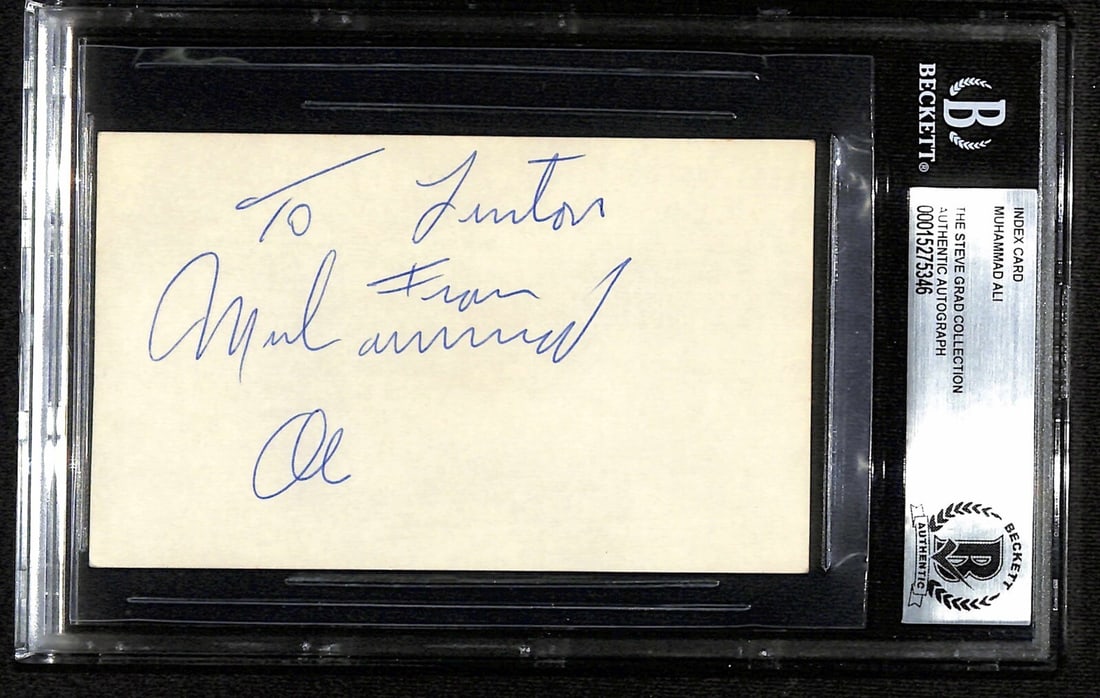 To Linton
From
Muhammad
Ali
BECKETT®
INDEX CARD
MUHAMMAD ALI
THE STEVE GRAD COLLECTION
AUTHENTIC AUTOGRAPH
00015275346
BECKETT
AUTHENTIC